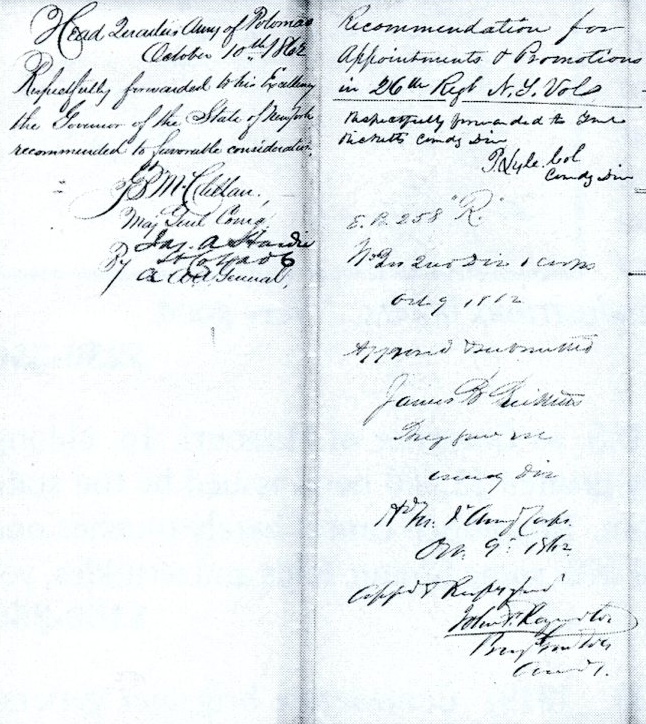 Head Quarters Army of Potomac
October 10th 1862
Respectfully forwarded to his Excellency
the Governor of the State of New York
recommended to favorable consideration.
McClellan.
Maj Genl Comg
By Jas. A Hardie
Lt Col
A A Genl,
Recommendation for
Appointments & Promotions
in 26th Regt N.Y. Vols
Respectfully forwarded to Genl
Ricketts Comdg Div
P Lyle Col
Comdg Div
E.B. 258 "R."
Hd Qrs 2nd Div 1 Corps
Oct 9 1862
Approved & submitted
James B Ricketts
Brig Gen
Div
Army Corps
Oct. 9th 1862
Appd &
John F Reynolds
Brig Gen Vols